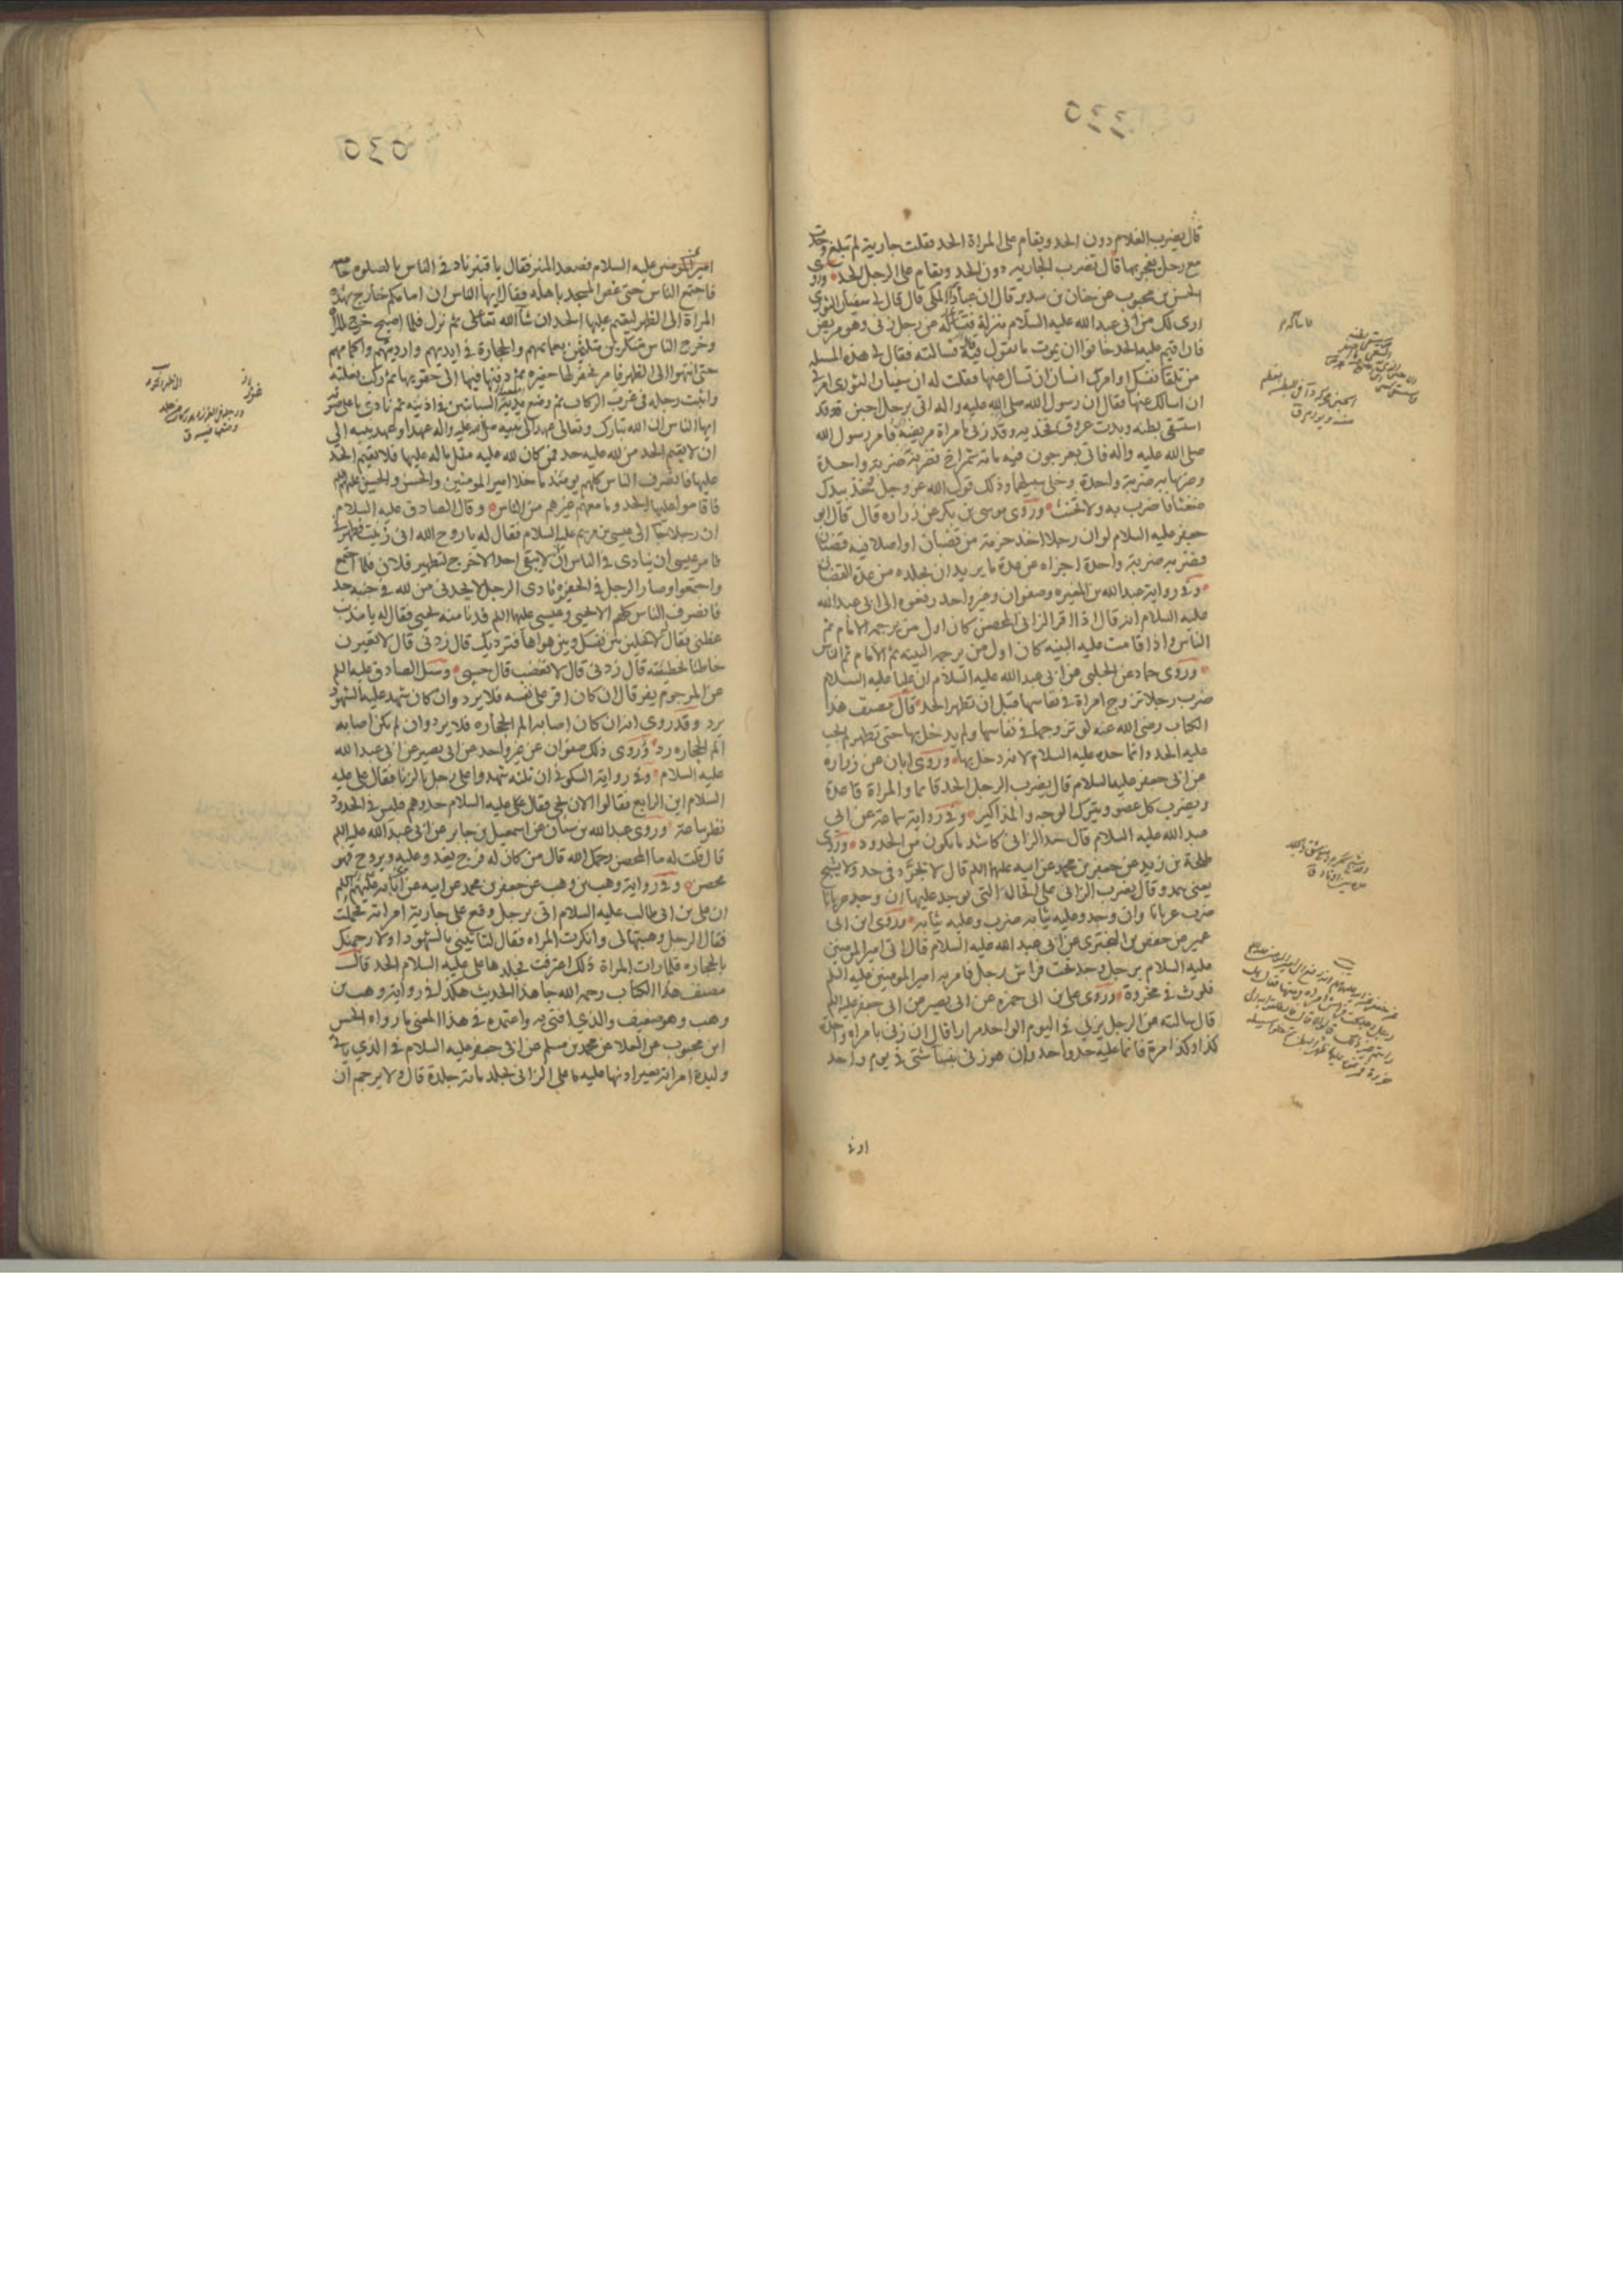 ٥٤٤
قال يضرب الغلام دون الحد ويقام على المراة الحد فقلت جارية لم تبلغ وجدت
مع رجل يفجر بها قال تضرب الجاريه دون الحد ويقام على الرجل الحد وروى
الحسن بن محبوب عن حنان بن سدير قال ان عباد المكى قال قال لى سفيان الثورى
ارى لك من ابى عبد الله عليه السلام منزلة فسأله عن رجل زنى وهو مريض
فان اقيم عليه الحد خافوا ان يموت ما تقول فيه فسالته فقال لى هذه المسله
من تلقا نفسك او امرك انسان ان تسال عنها فقلت له ان سفيان الثورى امرنى
ان اسالك عنها فقال ان رسول الله صلى الله عليه واله اتى برجل احبن قد
استسقى بطنه وبدت عروق فخذيه وقد زنى بامراة مريضة فامر رسول الله
صلى الله عليه واله فاتى بعرجون فيه مائة شمراخ فضربه ضربة واحدة
وضربها به ضربة واحدة وخلى سبيلهما وذلك قول الله عز وجل فخذ بيدك
ضغثا فاضرب به ولا تحنث وروى موسى بن بكر عن زراره قال قال ابو
جعفر عليه السلام لو ان رجلا اخذ حزمة من قضبان او اصلا فيه قضبان
فضربه ضربة واحدة اجزاه عن عدة ما يريد ان يجلده من عدة القضبان
وفى رواية عبد الله بن المغيره وصفوان وغير واحد رفعوه الى ابى عبد الله
عليه السلام انه قال اذا اقر الزانى المحصن كان اول من يرجمه الامام ثم
الناس واذا قامت عليه البينه كان اول من يرجمه البينه ثم الامام ثم الناس
وروى حماد عن الحلبى عن ابى عبد الله عليه السلام ان عليا عليه السلام
ضرب رجلا تزوج امراة فى نفاسها قبل ان تطهر الحد قال مصنف هذا
الكتاب رضى الله عنه لو تزوجها فى نفاسها ولم يدخل بها حتى تطهر لم يجب
عليه الحد وانما حده عليه السلام لانه دخل بها وروى ابان عن زراره
عن ابى جعفر عليه السلام قال يضرب الرجل الحد قائما والمراة قاعدة
ويضرب كل عضو ويترك الوجه والمذاكير وفى رواية سماعة عن ابى
عبد الله عليه السلام قال حد الزانى كاشد ما يكون من الحدود وروى
طلحة بن زيد عن جعفر بن محمد عن ابيه عليهما السلم قال لا يجرد فى حد ولا يشبح
يعنى يمد وقال يضرب الزانى على الحالة التى يوجد عليها ان وجد عريانا
ضرب عريانا وان وجد وعليه ثيابه ضرب وعليه ثيابه وروى ابن ابى
عمير عن حفص بن البخترى عن ابى عبد الله عليه السلام قال اتى امير المومنين
عليه السلام برجل وجد تحت فراش رجل فامر به امير المومنين عليه السلم
فلوث فى مخروة وروى على بن ابى حمزه عن ابى بصير عن ابى جعفر عليه السلم
قال سالته عن الرجل يزنى فى اليوم الواحد مرارا قال ان زنى بامراه واحدة
كذا وكذا مرة فانما عليه حد واحد وان هو زنى بنسآ شتى فى يوم واحد
او فى
٥٤٥
امير المومنين عليه السلام فصعد المنبر فقال يا قنبر ناد فى الناس بالصلوة جامعه
فاجتمع الناس حتى غص المسجد باهله فقال ايها الناس ان امامكم خارج بهذه
المراة الى الظهر ليقيم عليها الحد ان شآ الله تعالى ثم نزل فلما اصبح خرج بالمراة
وخرج الناس متنكرين متلثمين بعمائمهم والحجارة فى ايديهم وارديتهم واكمامهم
حتى انتهوا الى الظهر فامر فحفر لها حفيره ثم دفنها فيها الى حقويها ثم ركب بغلته
واثبت رجله فى غرز الركاب ثم وضع يديه السبابتين فى اذنيه ثم نادى باعلى صوته
ايها الناس ان الله تبارك وتعالى عهد الى نبيه صلى الله عليه واله عهدا وعهد نبيه الى
ان لا يقيم الحد من لله عليه حد فمن كان لله عليه مثل ماله عليها فلا يقيم الحد
عليها فانصرف الناس كلهم يومئذ ما خلا امير المومنين والحسن والحسين عليهم السلم
فاقاموا عليها الحد وما معهم غيرهم من الناس وقال الصادق عليه السلام
ان رجلا جآ الى عيسى بن مريم عليه السلام فقال له يا روح الله انى زنيت فطهرنى
فامر عيسى ان ينادى فى الناس ان لا يبقى احد الا خرج لتطهير فلان فلما اجتمع
واجتمعوا وصار الرجل فى الحفره نادى الرجل لا يحدنى من لله فى جنبه حد
فانصرف الناس كلهم الا يحيى وعيسى عليهما السلم فدنا منه يحيى فقال له يا مذنب
عظنى فقال لا تخلين بين نفسك وبين هواها فترديك قال زدنى قال لا تعيرن
خاطئا بخطيئته قال زدنى قال لا تغضب قال حسبى وسئل الصادق عليه السلم
عن المرجوم يفر قال ان كان اقر على نفسه فلا يرد وان كان شهد عليه الشهود
يرد وقد روى انه ان كان اصابه الم الحجاره فلا يرد وان لم يكن اصابه
الم الحجاره رد وروى ذلك صفوان عن غير واحد عن ابى بصير عن ابى عبد الله
عليه السلام وفى رواية السكونى ان ثلثه شهدوا على رجل بالزنا فقال على عليه
السلام اين الرابع فقالوا الان يجى فقال على عليه السلام حدوهم فليس فى الحدود
نظر ساعة وروى عبد الله بن سنان عن اسمعيل بن جابر عن ابى عبد الله عليه السلم
قال قلت له ما المحصن رحمك الله قال من كان له فرج يغدو عليه ويروح فهو
محصن وفى رواية وهب بن وهب عن جعفر بن محمد عن ابيه عن آبائه عليهم السلم
ان على بن ابى طالب عليه السلام اتى برجل وقع على جارية امراته فحملت
فقال الرجل وهبتها لى وانكرت المراه فقال لتاتينى بالشهود او لارجمنك
بالحجاره فلما رات المراة ذلك اعترفت فجلدها على عليه السلام الحد قال
مصنف هذا الكتاب رحمه الله جا هذا الحديث هكذا فى رواية وهب بن
وهب وهو ضعيف والذى افتى به واعتمده فى هذا المعنى ما رواه الحسن
ابن محبوب عن العلا عن محمد بن مسلم عن ابى جعفر عليه السلام فى الذى ياتى
وليدة امراته بغير اذنها عليه ما على الزانى يجلد مائة جلدة قال ولا يرجم ان